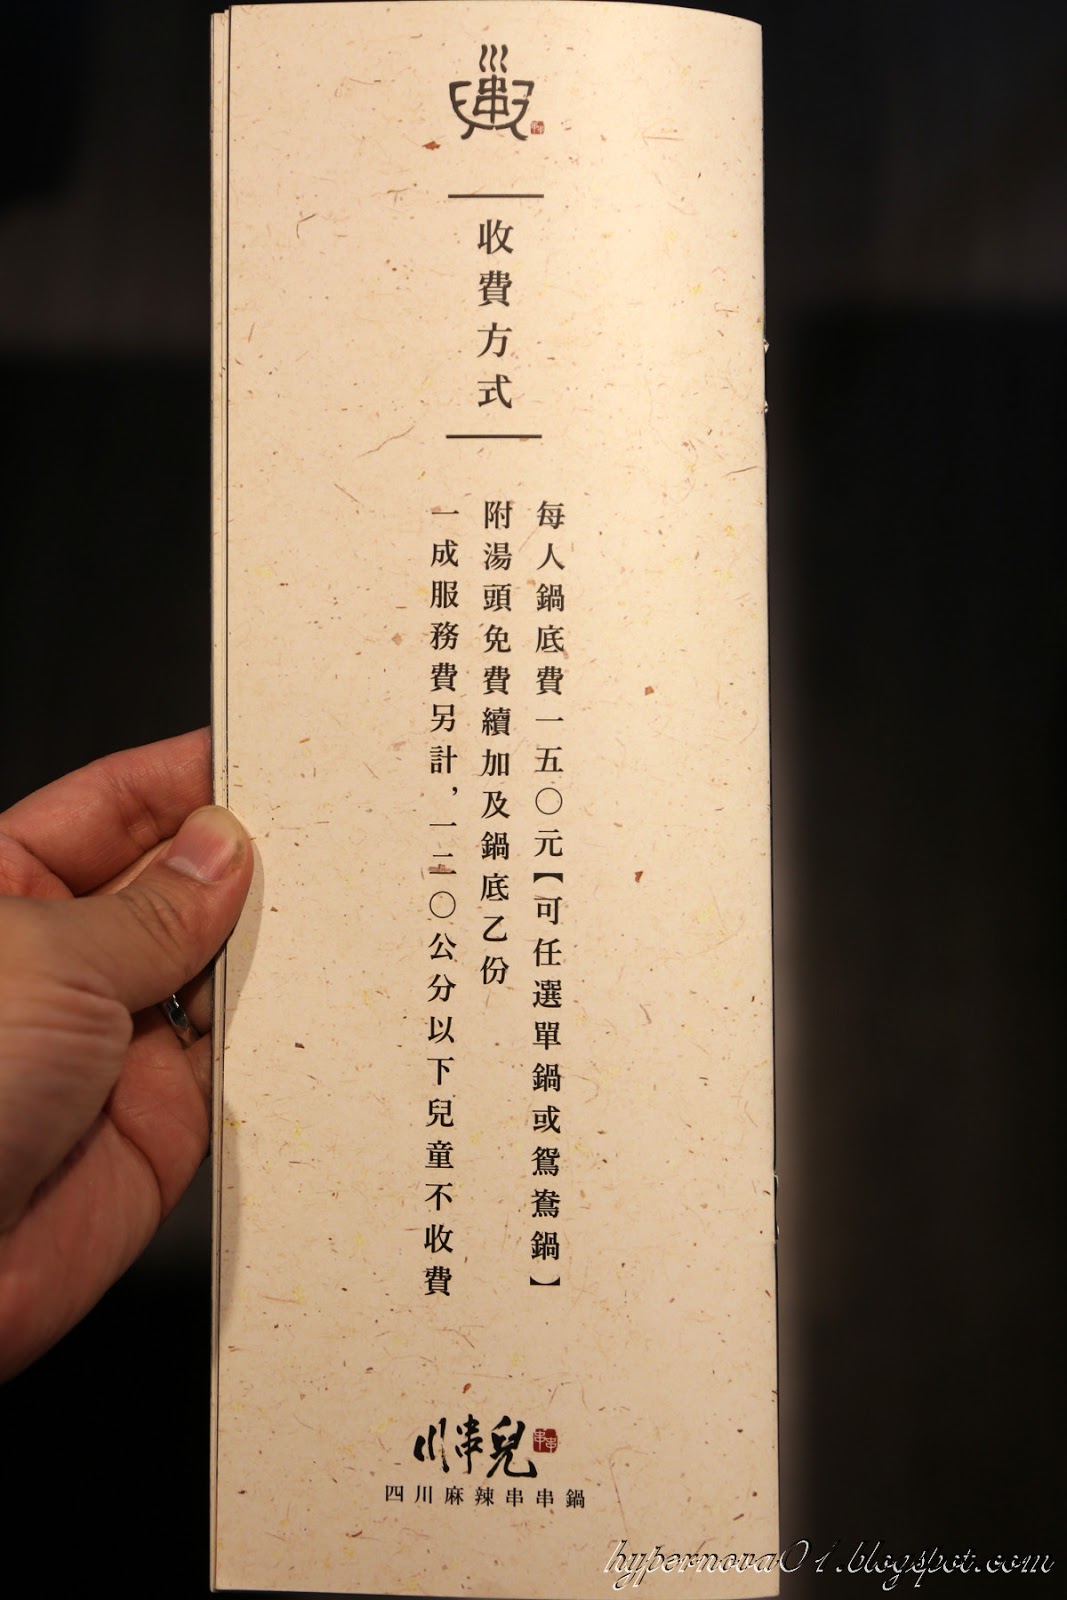 收費方式
每人鍋底費一五〇元【可任選單鍋或鴛鴦鍋】
附湯頭免費續加及鍋底乙份
一成服務費另計，一二〇公分以下兒童不收費
川串兒
串串
四川麻辣串串鍋
hypernova01.blogspot.com